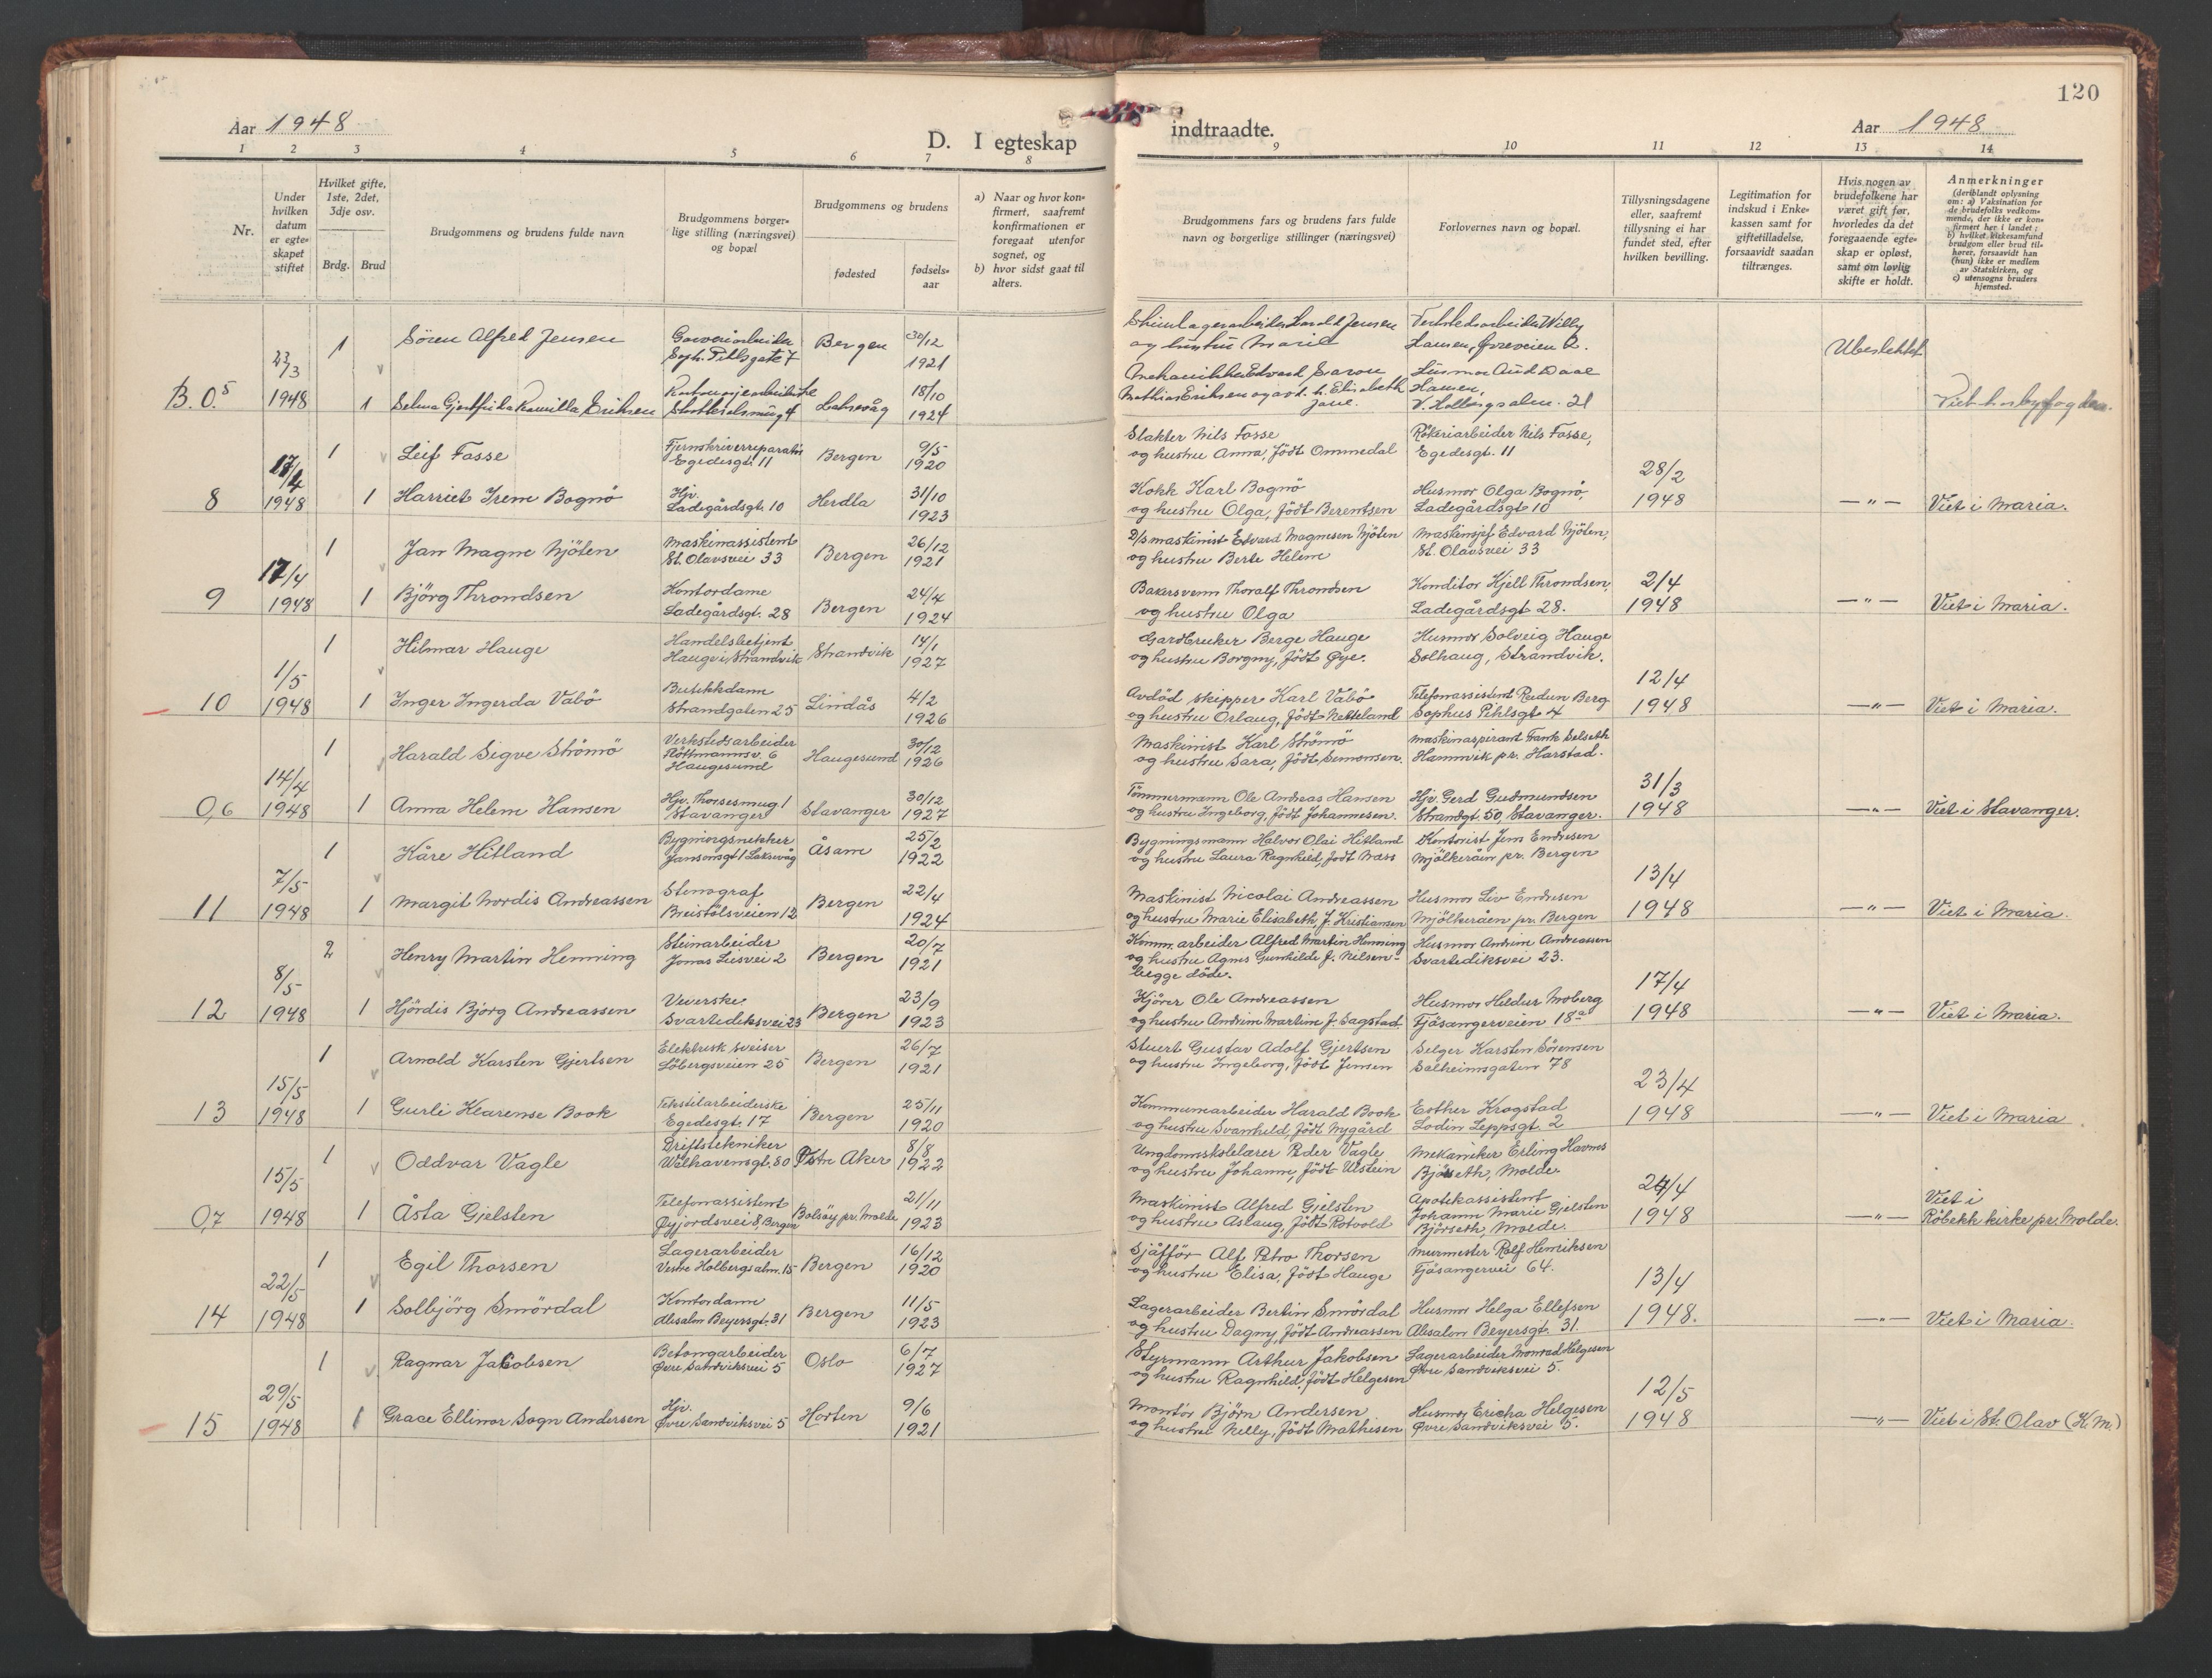 120
Aar 1948
D. I egteskap
indtraadte.
Aar 1948
1 2 3 4 5 6 7 8 9 10 11 12 13 14
Nr.
Under hvilken datum er egteskapet stiftet
Hvilket gifte, 1ste, 2det, 3dje osv.
Brdg. Brud
Brudgommens og brudens fulde navn
Brudgommens borgerlige stilling (næringsvei) og bopæl
Brudgommens og brudens
fødested
fødselsaar
a) Naar og hvor konfirmert, saafremt konfirmationen er foregaat utenfor sognet, og
b) hvor sidst gaat til alters.
Brudgommens fars og brudens fars fulde navn og borgerlige stillinger (næringsvei)
Forlovernes navn og bopæl.
Tillysningsdagene eller, saafremt tillysning ei har fundet sted, efter hvilken bevilling.
Legitimation for indskud i Enkekassen samt for giftetilladelse, forsaavidt saadan tiltrænges.
Hvis nogen av brudefolkene har været gift før, hvorledes da det foregaaende egteskap er opløst, samt om lovlig skifte er holdt.
Anmerkninger
(deriblandt oplysning om: a) Vaksination for de brudefolks vedkommende, der ikke er konfirmert her i landet; b) hvilket kirkesamfund brudgom eller brud tilhører, forsaavidt han (hun) ikke er medlem av Statskirken, og c) utensogns bruders hjemsted.
B.O.5 23/3 1948
1 Sören Alfred Jensen Garveriarbeider Soph. Pihlsgate 7 Bergen 30/12 1921
Harald Jensen og hustru Marie
Verkstedsarbeider Willy Hansen, Øvreveien 2.
Ubeslektet
1 Selma Gjertfrida Kamilla Eriksen Laksevåg 18/10 1924
Mekaniker Edvard
Mathias Eriksen og Elisabeth Jane.
Husmor Aud Daae Hansen, V. Holbergsalm. 21
Viet hos byfogden.
8 17/4 1948
1 Leif Fosse Fjernskriverreparatör Egedesgt. 11 Bergen 9/5 1920
Slakter Nils Fosse og hustru Anna, födt Ommedal
Rökeriarbeider Nils Fosse, Egedesgt. 11
1 Harriet Irene Bognö Hjv. Ladegårdsgt. 10 Herdla 31/10 1923
Kokk Karl Bognö og hustru Olga, födt Berentsen
Husmor Olga Bognö, Ladegårdsgt 10
28/2 1948 —"— Viet i Maria.
9 17/4 1948
1 Jan Magne Njöten Maskinassistent St. Olavsvei 33 Bergen 26/12 1921
D/s maskinist Edvard Magnusen Njöten og hustru Berte Helene
Maskinsjef Edvard Njöten, St. Olavsvei 33
1 Björg Throndsen Kontordame Ladegårdsgt. 28 Bergen 24/4 1924
Bakersvenn Thoralf Throndsen og hustru Olga
Konditor Kjell Throndsen, Ladegårdsgt 28.
2/4 1948 —"— Viet i Maria.
10 1/5 1948
1 Hilmar Hauge Handelsbetjent Hauge i Strandvik Strandvik 14/1 1927
Gardbruker Berge Hauge og hustru Borgny, födt Øye.
Husmor Solveig Hauge Solhaug, Strandvik.
1 Inger Ingerda Vabö Butikkdame Strandgaten 25 Lindås 4/2 1926
Avdöd skipper Karl Vabö og hustru Orlaug, födt Netteland
Telefonassistent Reidun Berg Sophus Pihlsgt 4
12/4 1948 —"— Viet i Maria.
0,6 14/4 1948
1 Harald Sigve Strömö Verkstedsarbeider Röthmannsv. 6 Haugesund Haugesund 30/12 1926
Maskinist Karl Strömö og hustru Sara, födt Simonsen.
Maskinaspirant Frank Selseth Hamnvik pr. Harstad.
1 Anna Helene Hansen Hjv. Thorsesmug. 1 Stavanger Stavanger 30/12 1927
Tömmermann Ole Andreas Hansen og hustru Ingeborg, födt Johannesen.
Hjv. Gerd Gudmundsen Strandgt. 50, Stavanger.
31/3 1948 —"— Viet i Stavanger.
11 7/5 1948
1 Kåre Hitland Bygningssnekker Jansonsgt 1 Laksevåg Åsane 25/2 1922
Bygningsmann Halvor Olai Hitland og hustru Laura Ragnhild, födt Næss
Kontorist Jens Endresen Mjölkeråen pr. Bergen
1 Margit Nordis Andreassen Stenograf Breistölsveien 12 Bergen 22/4 1924
Maskinist Nicolai Andreassen og hustru Marie Elisabeth f. Kristiansen
Husmor Liv Endresen Mjölkeråen pr. Bergen
13/4 1948 —"— Viet i Maria.
12 8/5 1948
2 Henry Martin Henning Steinarbeider Jonas Liesvei 2 Bergen 20/7 1921
Komm. arbeider Alfred Martin Henning og hustru Agnes Gunhilde f. Nilsen - begge döde.
Husmor Andrine Andreassen Svartediksvei 23.
1 Hjördis Björg Andreassen Veverske Svartediksvei 23 Bergen 23/9 1923
Kjörer Ole Andreassen og hustru Andrine Martine f. Sagstad
Husmor Hildur Moberg Fjösangerveien 18a
17/4 1948 —"— Viet i Maria.
13 15/5 1948
1 Arnold Karsten Gjertsen Elektrisk sveiser Löbergsveien 25 Bergen 26/7 1921
Stuert Gustav Adolf Gjertsen og hustru Ingeborg, födt Jensen
Selger Karsten Sörensen Solheimsgaten 78
1 Gurli Klarense Book Tekstilarbeiderske Egedesgt. 17 Bergen 25/11 1920
Kommunearbeider Harald Book og hustru Svanhild, födt Nygård
Esther Krogstad Lodin Leppsgt. 2
23/4 1948 —"— Viet i Maria
0,7 15/5 1948
1 Oddvar Vagle Driftstekniker Welhavensgt. 80 Østre Aker 8/8 1922
Ungdomsskolelærer Peder Vagle og hustru Johanne, födt Ulstein
Mekaniker Erling Havnes Björseth, Molde.
1 Åsta Gjelsten Telefonassistent Øyjordsvei 8, Bergen Bolsöy pr. Molde 21/11 1923
Maskinist Alfred Gjelsten og hustru Aslaug, födt Rotvold
Apotekassistent Johanne Marie Gjelsten Björseth, Molde.
24/4 1948 —"— Viet i Röbekk kirke pr. Molde.
14 22/5 1948
1 Egil Thorsen Lagerarbeider Vestre Holbergsalm. 15 Bergen 16/12 1920
Sjåfför Alf Petro Thorsen og hustru Elisa, födt Hauge
Murmester Rolf Henriksen Fjösangervei 64.
1 Solbjörg Smördal Kontordame Absalon Beyersgt. 31 Bergen 11/5 1923
Lagerarbeider Bertin Smördal og hustru Dagny, födt Andreassen
Husmor Helga Ellefsen Absalon Beyersgt. 31.
13/4 1948. —"— Viet i Maria.
15 29/5 1948
1 Ragnar Jakobsen Betongarbeider Øvre Sandviksvei 5 Oslo 6/7 1927
Styrmann Arthur Jakobsen og hustru Ragnhild, födt Helgesen
Lagerarbeider Monrad Helgesen Øvre Sandviksvei 5.
1 Grace Ellinor Sogn Andersen Hjv. Øvre Sandviksvei 5 Horten 9/6 1921
Montör Björn Andersen og hustru Nelly, födt Mathisen
Husmor Ericha Helgesen Øvre Sandviksvei 5.
12/5 1948 —"— Viet i St. Olav (K.M.)